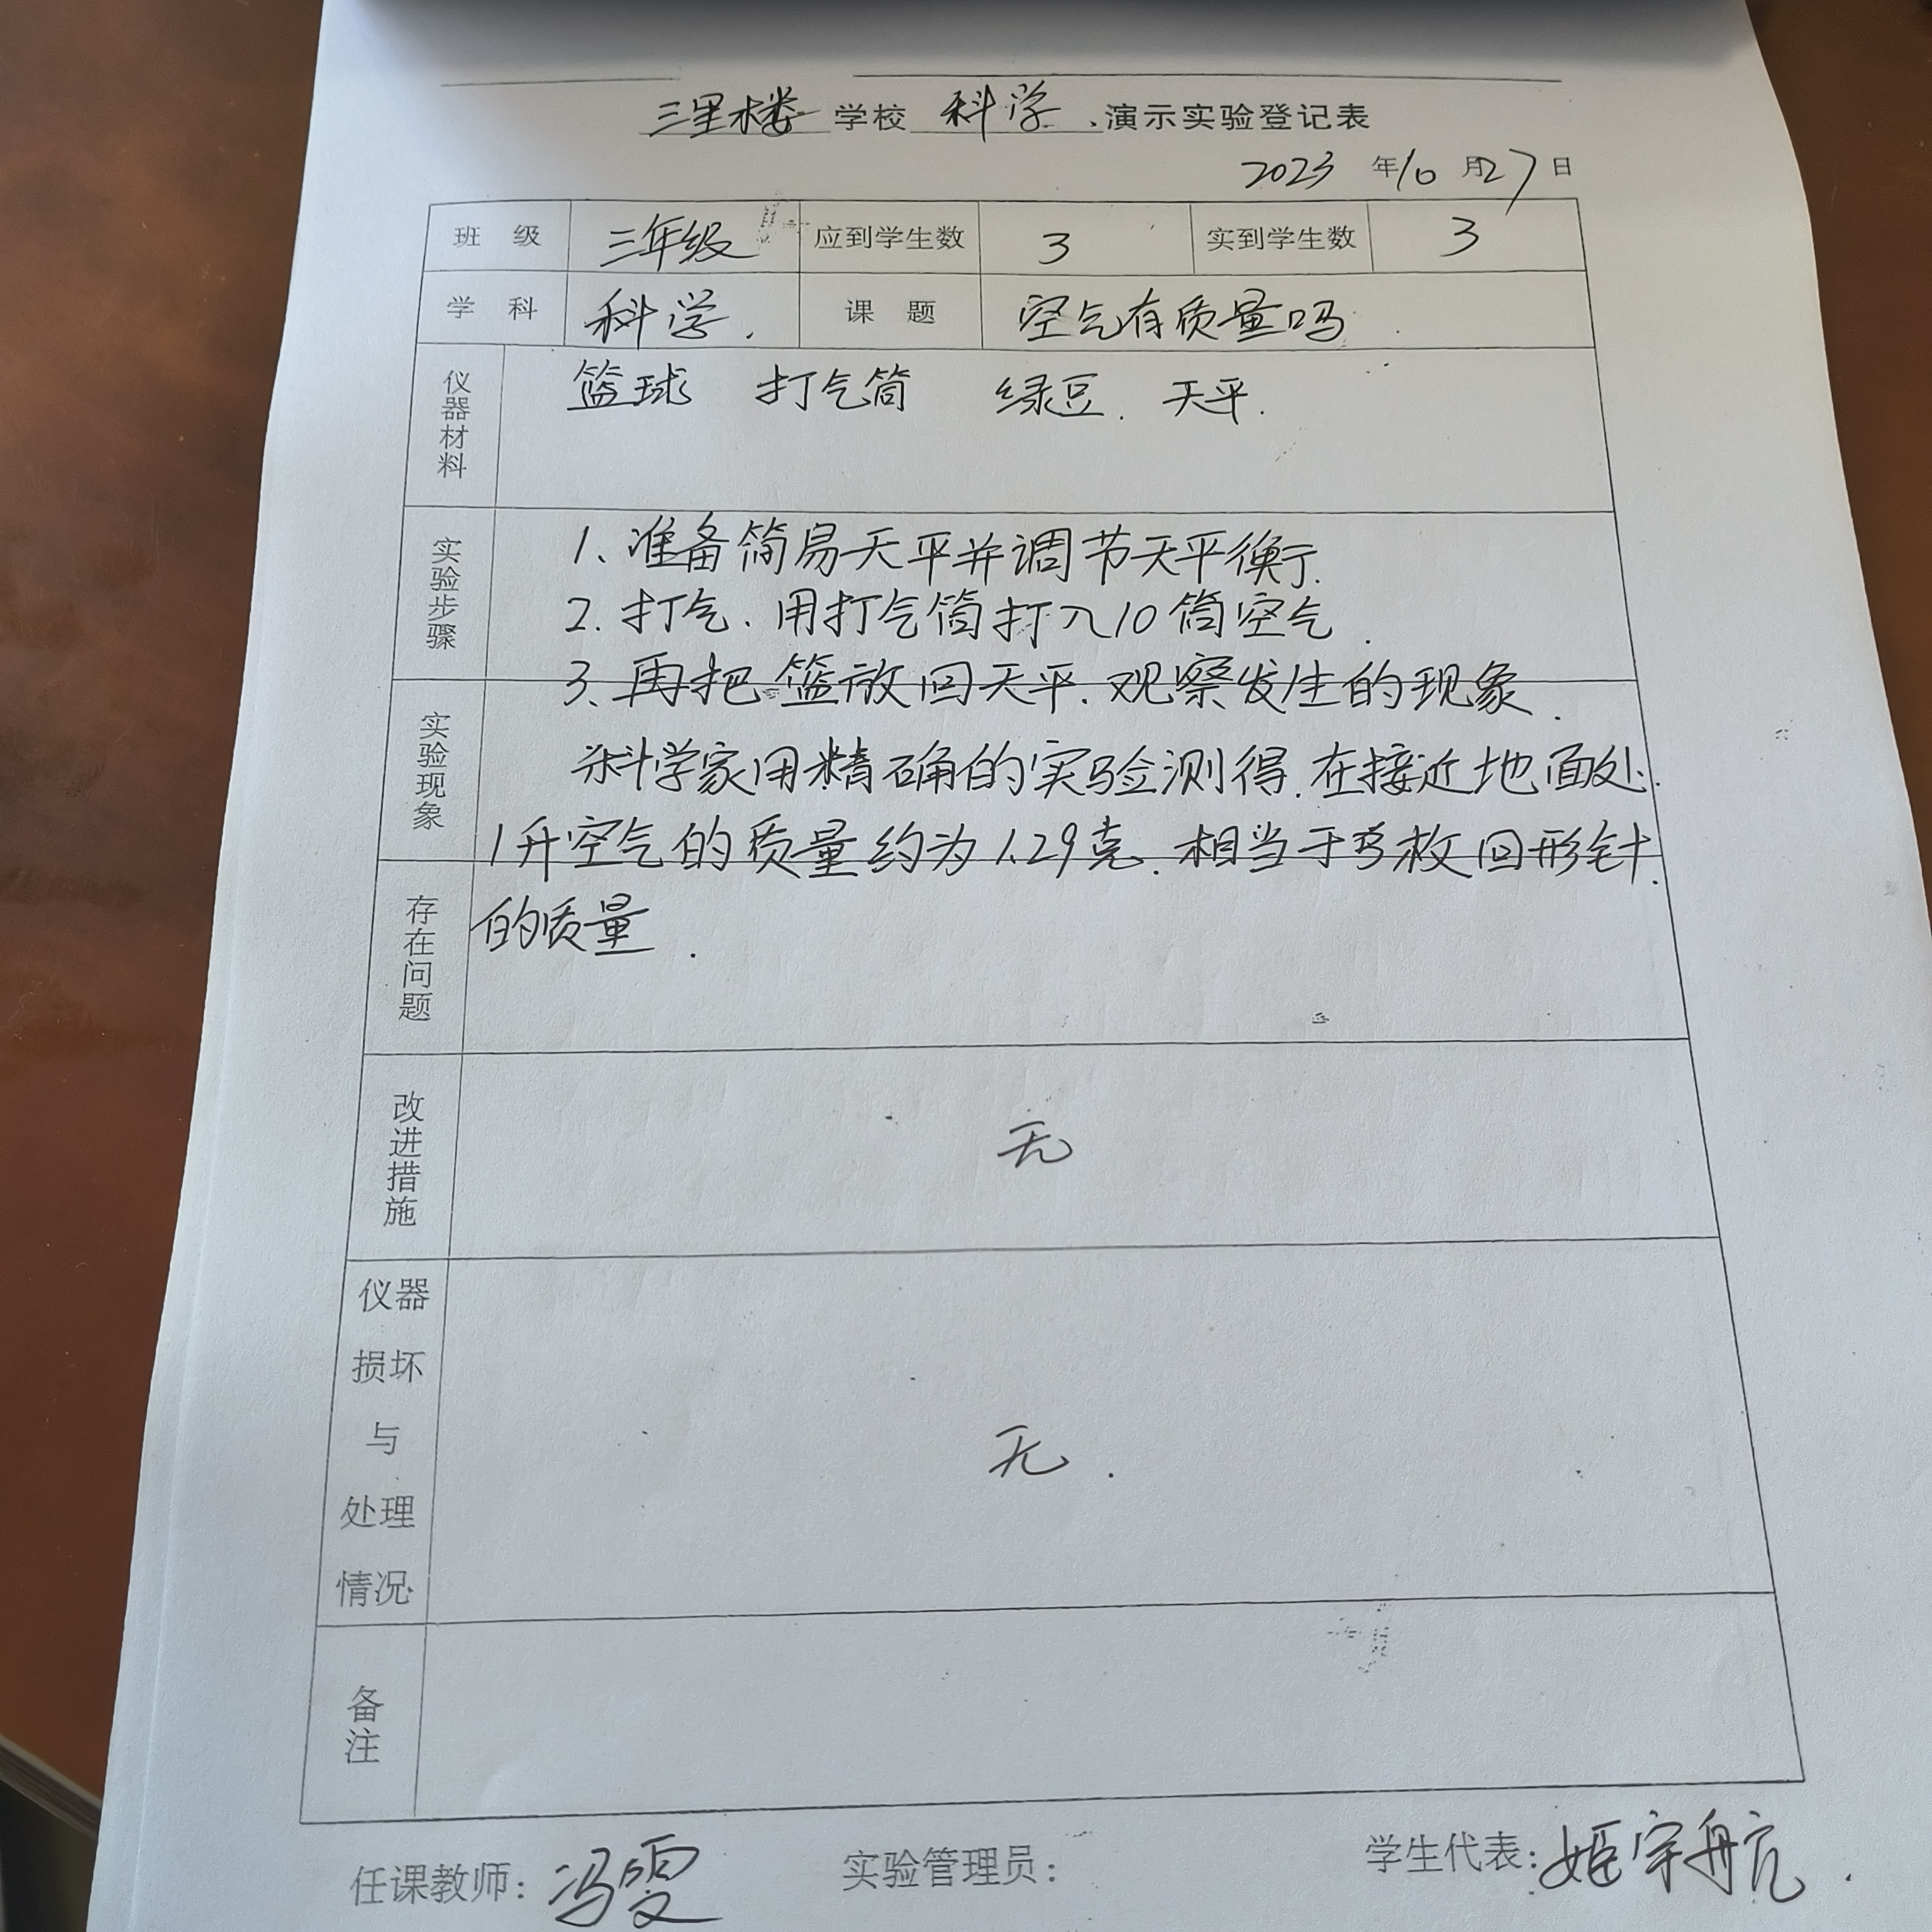 三里楼学校 科学 、演示实验登记表
2023 年 10 月 27 日
班 级 三年级 应到学生数 3 实到学生数 3
学 科 科学. 课 题 空气有质量吗
仪器材料 篮球 打气筒 绿豆. 天平.
实验步骤 1、准备简易天平并调节天平衡.
2. 打气. 用打气筒打入10筒空气.
3、再把篮放回天平. 观察发生的现象.
实验现象 科学家用精确的实验测得.在接近地面处.
1升空气的质量约为1.29克. 相当于3枚回形针.
存在问题 的质量.
改进措施 无
仪器损坏与处理情况 无.
备注
任课教师: 冯 实验管理员: 学生代表: 姬宇航.